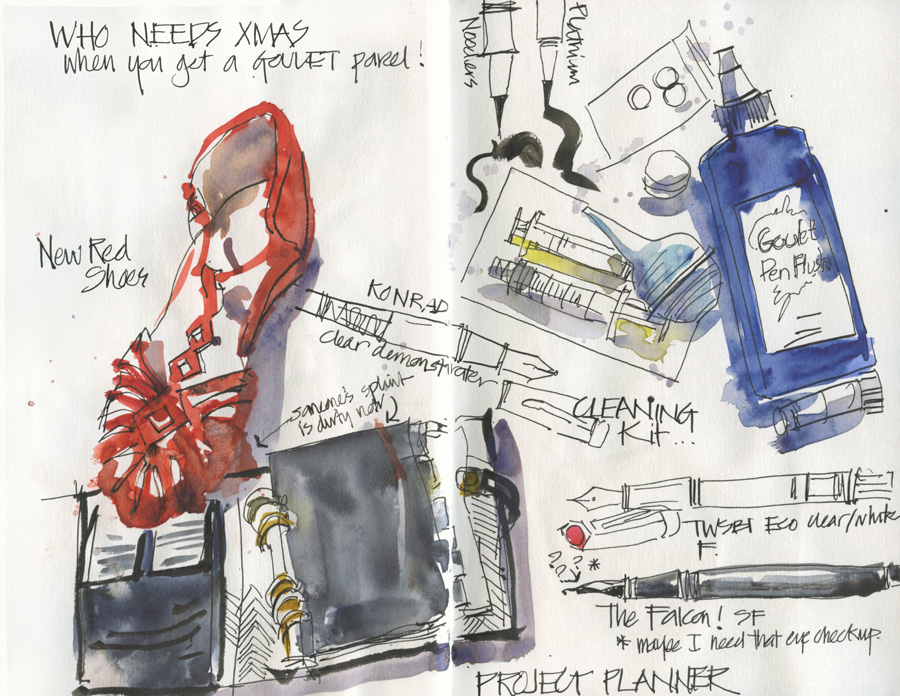 WHO NEEDS XMAS
when you get a GOULET parcel!
Noodlers
Platinum
New Red
Shoes
KONRAD
clear demonstrator
someone's splint
is dirty now
Goulet
Pen Flush
CLEANING
KIT...
TWSBI ECO clear/white
F.
??? *
The Falcon! SF
* maybe I need that eye checkup.
PROJECT PLANNER